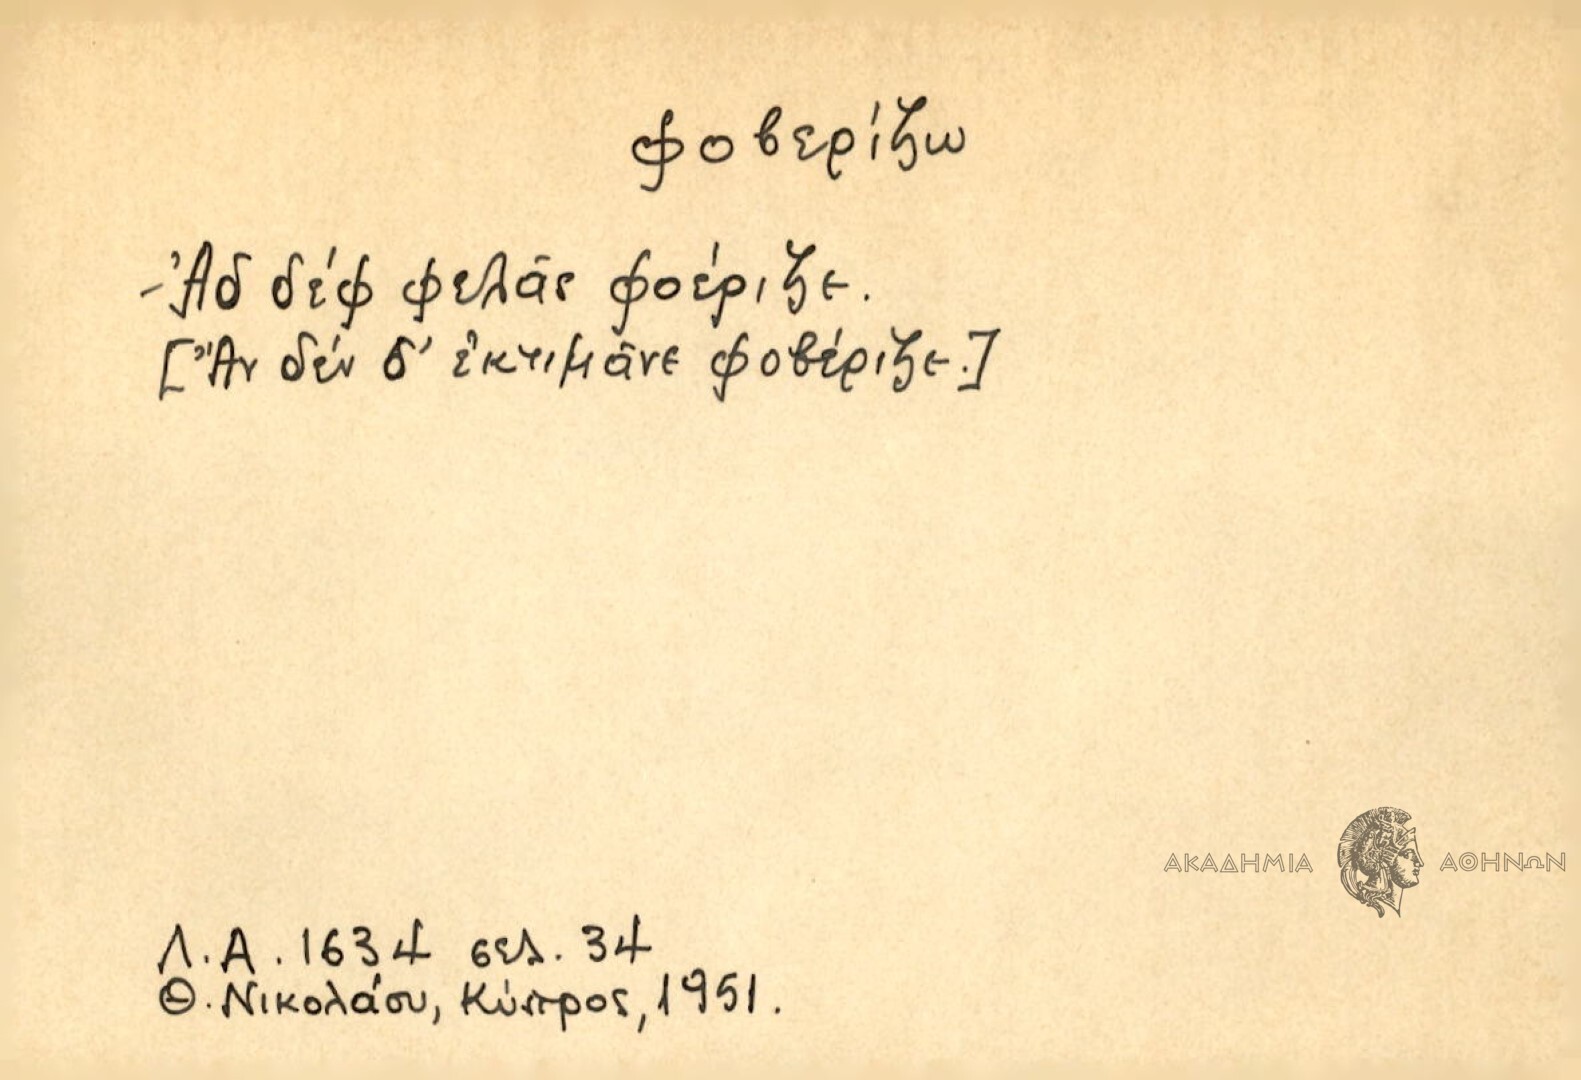 φοβερίζω
-Ἀδ δέφ φελᾶς φοέριζε.
[Ἂν δέν σ' ἐκτιμᾶνε φοβέριζε.]
ΑΚΑΔΗΜΙΑ ΑΘΗΝΩΝ
Λ.Α. 1634 σελ. 34
Θ. Νικολάου, Κύπρος, 1951.